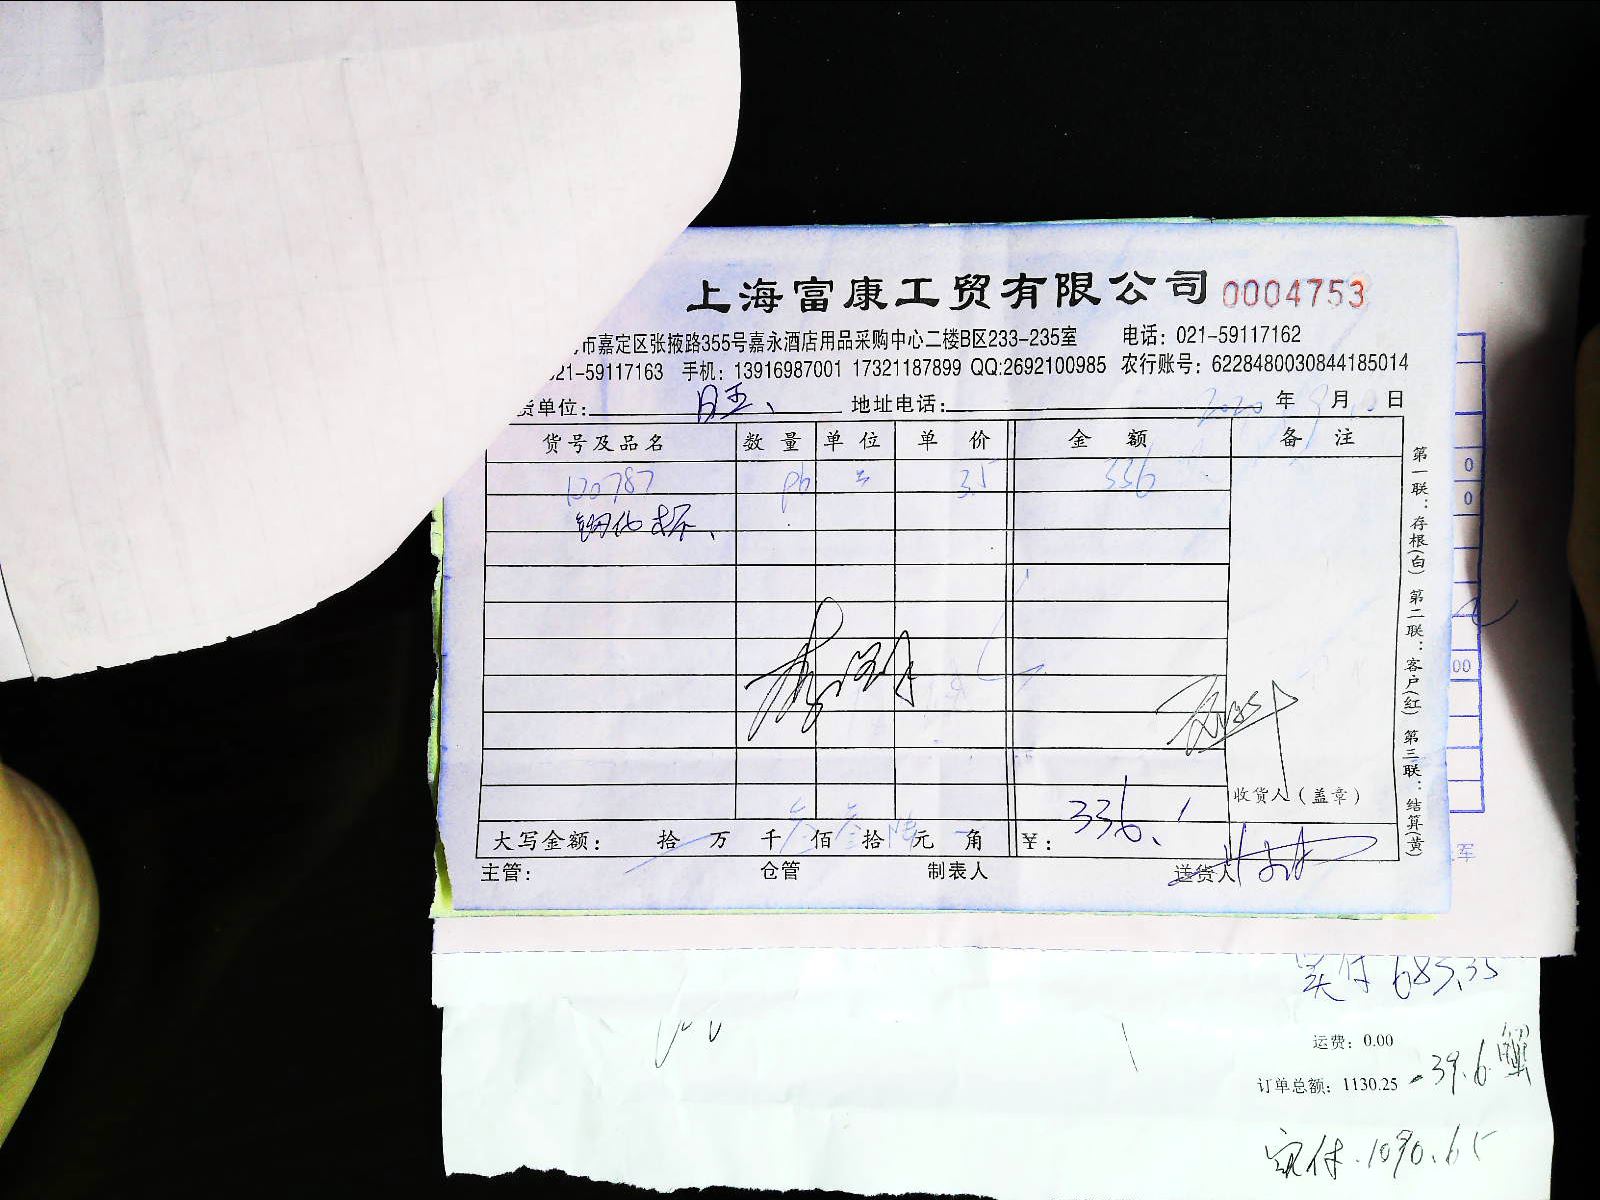 上海富康工贸有限公司 0004753
市嘉定区张掖路355号嘉永酒店用品采购中心二楼B区233-235室 电话：021-59117162
21-59117163 手机：13916987001 17321187899 QQ:2692100985 农行账号：6228480030844185014
货单位： 地址电话： 2020 年 9 月 10 日
货号及品名 数量 单位 单价 金额 备注
120787 96 3.5 336
钢化杯
第一联：存根(白) 第二联：客户(红) 第三联：结算(黄)
收货人（盖章）
大写金额： 拾 万 千 叁 佰 叁 拾 陆 元 角 ¥： 336.
主管： 仓管 制表人 送货人
0
0
00
军
实付 683.35
运费：0.00
订单总额：1130.25 -39.6 蟹
实付.1090.65